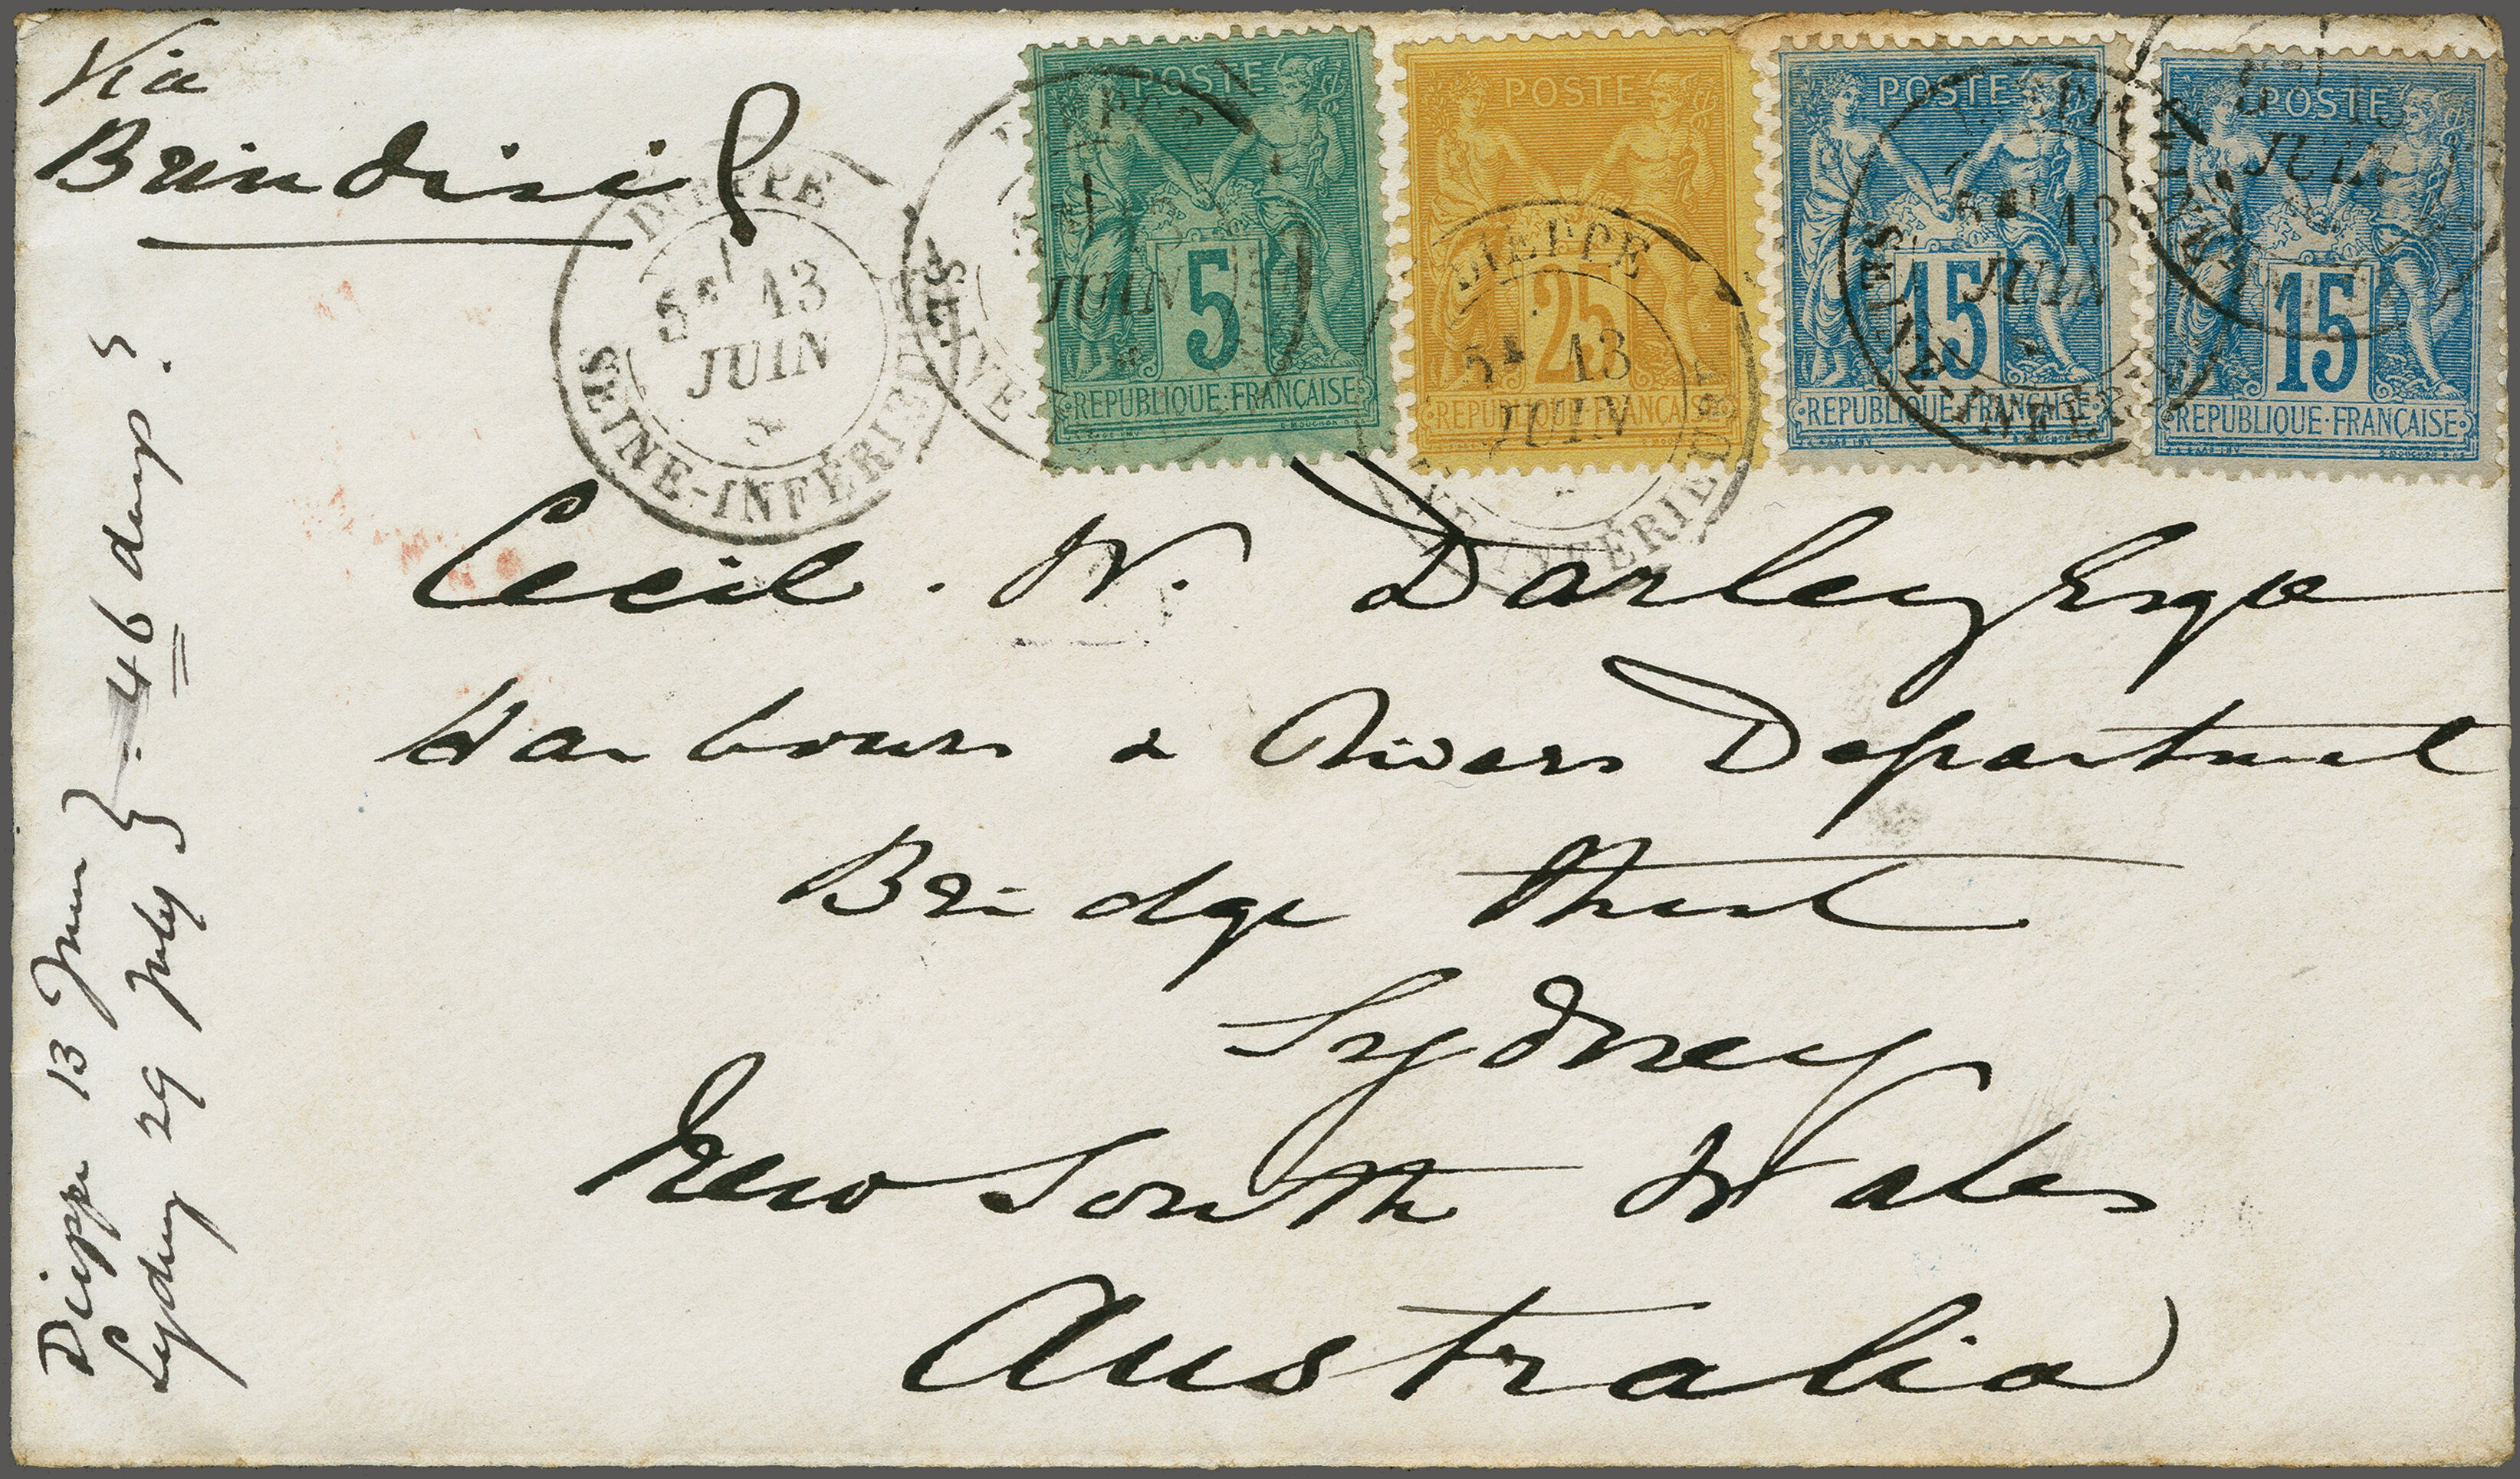 Via
Brindisi
POSTE
5
REPUBLIQUE·FRANÇAISE
POSTE
25
REPUBLIQUE·FRANÇAISE
POSTE
15
REPUBLIQUE·FRANÇAISE
POSTE
15
REPUBLIQUE·FRANÇAISE
DIEPPE
5e/ 13
JUIN
SEINE-INFÉRIEURE
DIEPPE
13
JUIN
INFÉRIEURE
13
JUIN
SEINE-INFÉRIEURE
JUIN
Cecil. W. Darley Esqre
Harbours & Rivers Department
Bridge Street
Sydney
New South Wales
Australia
Dieppe 13 June
Sydney 29 July } . 46 days.